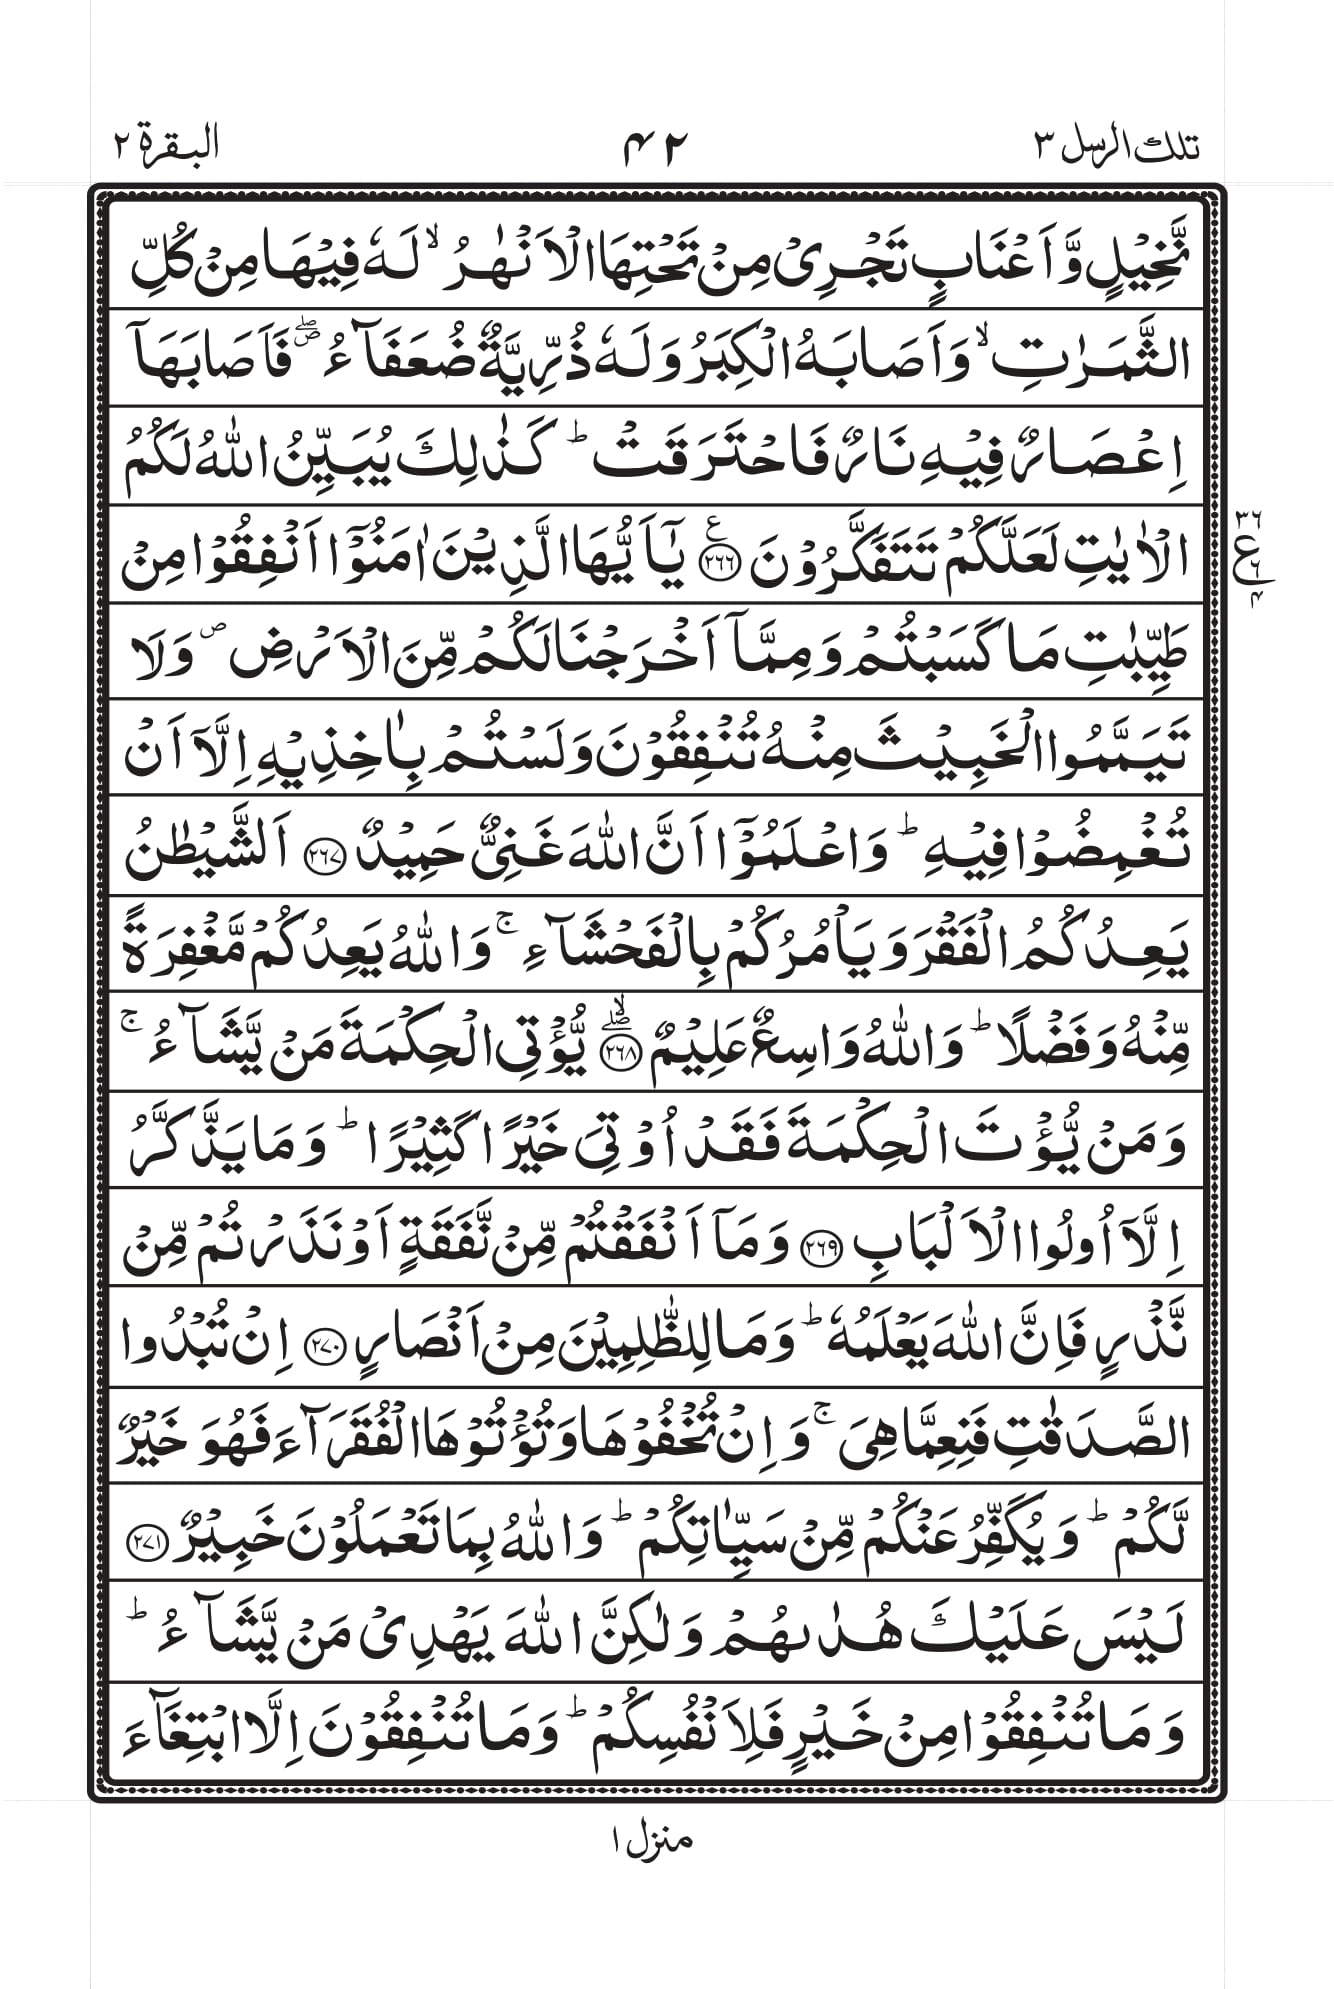 تلك الرسل ٣
٤٢
البقرة ٢
نَّخِيْلٍ وَّاَعْنَابٍ تَجْرِيْ مِنْ تَحْتِهَا الْاَنْهٰرُ ۙ لَهٗ فِيْهَا مِنْ كُلِّ
الثَّمَرٰتِ ۙ وَاَصَابَهُ الْكِبَرُ وَلَهٗ ذُرِّيَّةٌ ضُعَفَآءُ ۖ ص فَاَصَابَهَآ
اِعْصَارٌ فِيْهِ نَارٌ فَاحْتَرَقَتْ ؕ كَذٰلِكَ يُبَيِّنُ اللّٰهُ لَكُمُ
الْاٰيٰتِ لَعَلَّكُمْ تَتَفَكَّرُوْنَ ع ٢٦٦ يٰٓاَيُّهَا الَّذِيْنَ اٰمَنُوْٓا اَنْفِقُوْا مِنْ
٣٦
ع
٦
٤
طَيِّبٰتِ مَا كَسَبْتُمْ وَمِمَّآ اَخْرَجْنَا لَكُمْ مِّنَ الْاَرْضِ ص وَلَا
تَيَمَّمُوا الْخَبِيْثَ مِنْهُ تُنْفِقُوْنَ وَلَسْتُمْ بِاٰخِذِيْهِ اِلَّآ اَنْ
تُغْمِضُوْا فِيْهِ ؕ وَاعْلَمُوْٓا اَنَّ اللّٰهَ غَنِيٌّ حَمِيْدٌ ٢٦٧ اَلشَّيْطٰنُ
يَعِدُكُمُ الْفَقْرَ وَيَاْمُرُكُمْ بِالْفَحْشَآءِ ۚ وَاللّٰهُ يَعِدُكُمْ مَّغْفِرَةً
مِّنْهُ وَفَضْلًا ؕ وَاللّٰهُ وَاسِعٌ عَلِيْمٌ ۖۙ ٢٦٨ يُّؤْتِي الْحِكْمَةَ مَنْ يَّشَآءُ ۚ
وَمَنْ يُّؤْتَ الْحِكْمَةَ فَقَدْ اُوْتِيَ خَيْرًا كَثِيْرًا ؕ وَمَا يَذَّكَّرُ
اِلَّآ اُولُوا الْاَلْبَابِ ٢٦٩ وَمَآ اَنْفَقْتُمْ مِّنْ نَّفَقَةٍ اَوْ نَذَرْتُمْ مِّنْ
نَّذْرٍ فَاِنَّ اللّٰهَ يَعْلَمُهٗ ؕ وَمَا لِلظّٰلِمِيْنَ مِنْ اَنْصَارٍ ٢٧٠ اِنْ تُبْدُوا
الصَّدَقٰتِ فَنِعِمَّا هِيَ ۚ وَاِنْ تُخْفُوْهَا وَتُؤْتُوْهَا الْفُقَرَآءَ فَهُوَ خَيْرٌ
لَّكُمْ ؕ وَيُكَفِّرُ عَنْكُمْ مِّنْ سَيِّاٰتِكُمْ ؕ وَاللّٰهُ بِمَا تَعْمَلُوْنَ خَبِيْرٌ ٢٧١
لَيْسَ عَلَيْكَ هُدٰىهُمْ وَلٰكِنَّ اللّٰهَ يَهْدِيْ مَنْ يَّشَآءُ ؕ
وَمَا تُنْفِقُوْا مِنْ خَيْرٍ فَلِاَنْفُسِكُمْ ؕ وَمَا تُنْفِقُوْنَ اِلَّا ابْتِغَآءَ
منزل ١